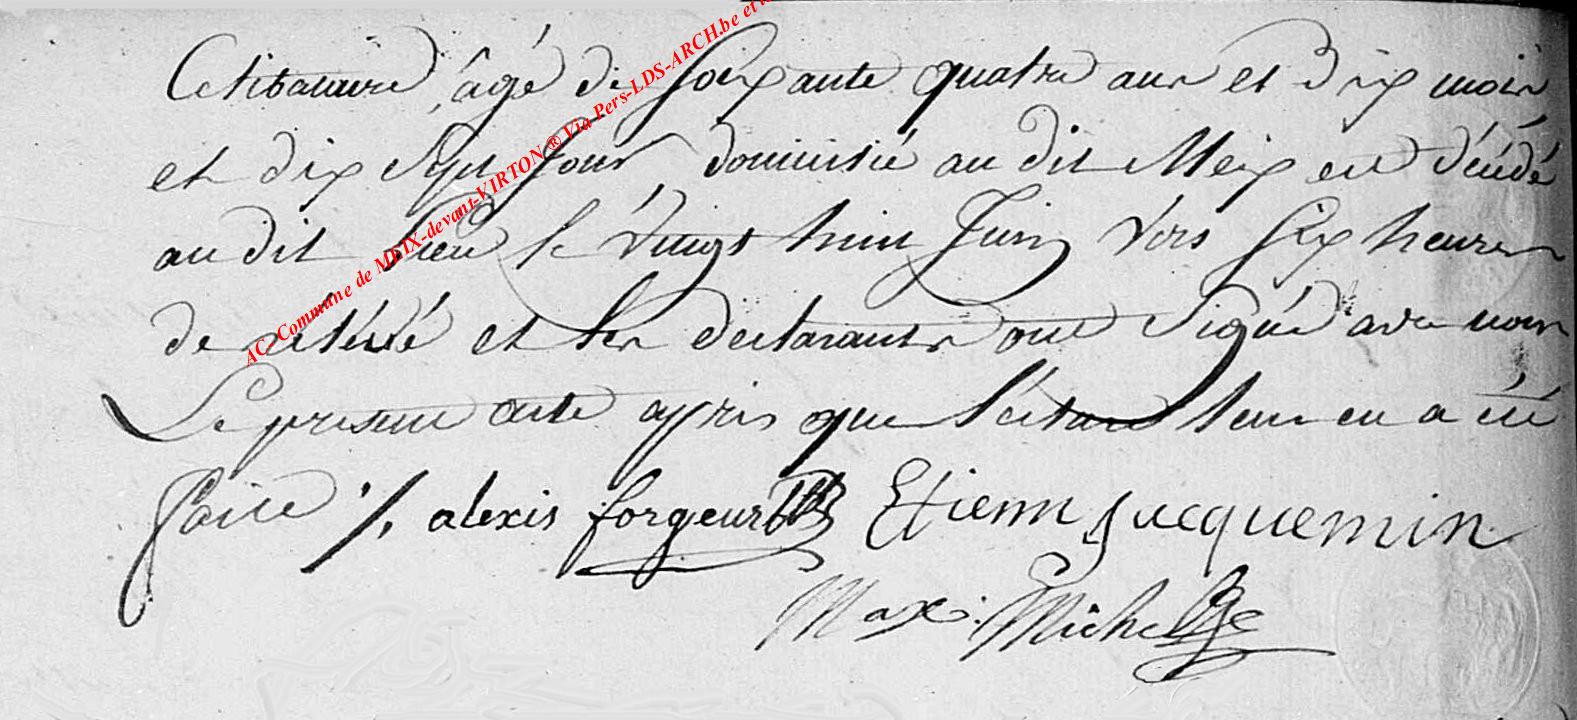 Celibataire, âgé de Soixante quatre ans et Dix mois
et dix Sept Jour domicilié au dit Meix est décédé
au dit Lieu le vingt huit Juin vers Six heures
de relevé et les declarants ont Signé avec nous
Le present acte apris que lecture leur en a été
faite ·/. alexis forgeur Etienn Jacquemin
Max: Michel
AC. Commune de MEIX-devant-VIRTON ® Via Pers-LDS-ARCH.be et